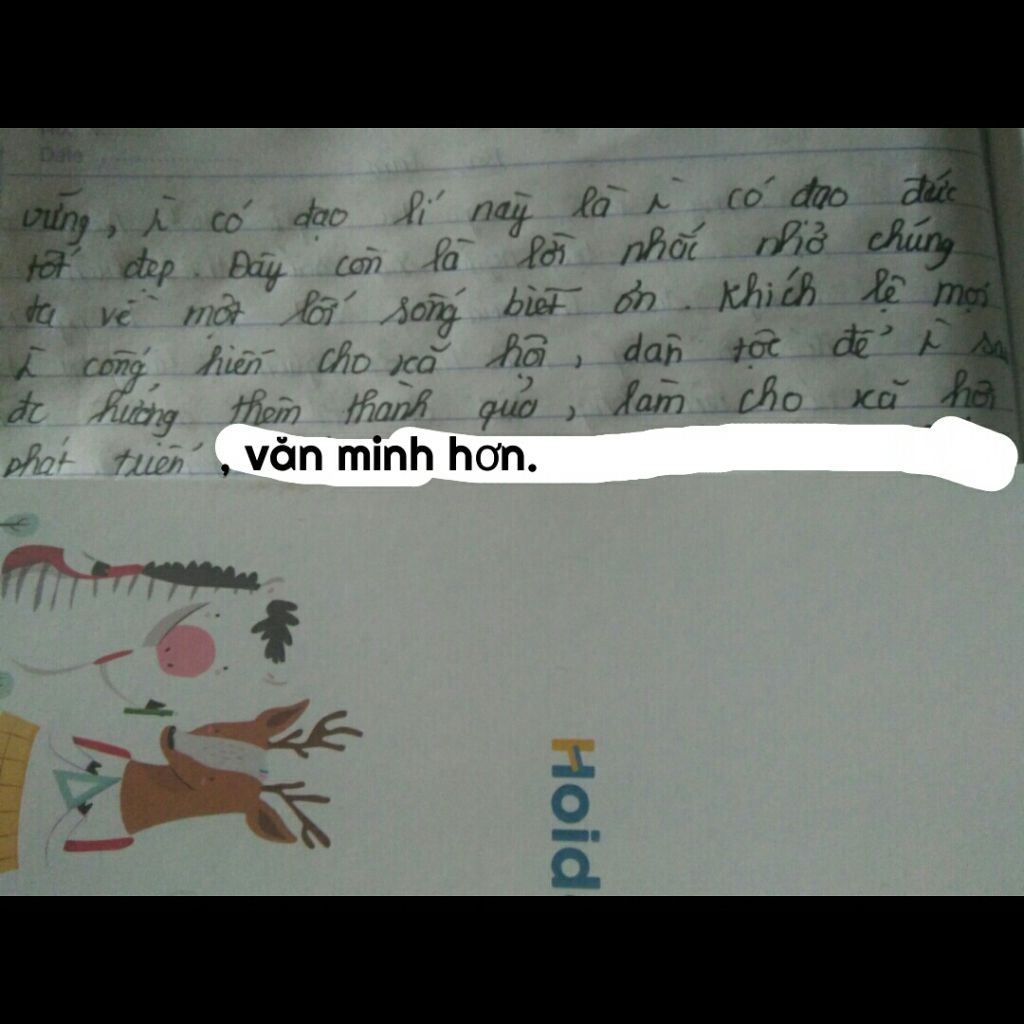 Date
vững, ì có đạo lí này là ì có đạo đức
tốt đẹp. Đây còn là lời nhắc nhở chúng
ta về một lối sống biết ơn. Khích lệ mọi
ì cống hiến cho xã hội, dân tộc để ì sau
đc hưởng thêm thành quả, làm cho xã hội
phát triển , văn minh hơn.
Hoid